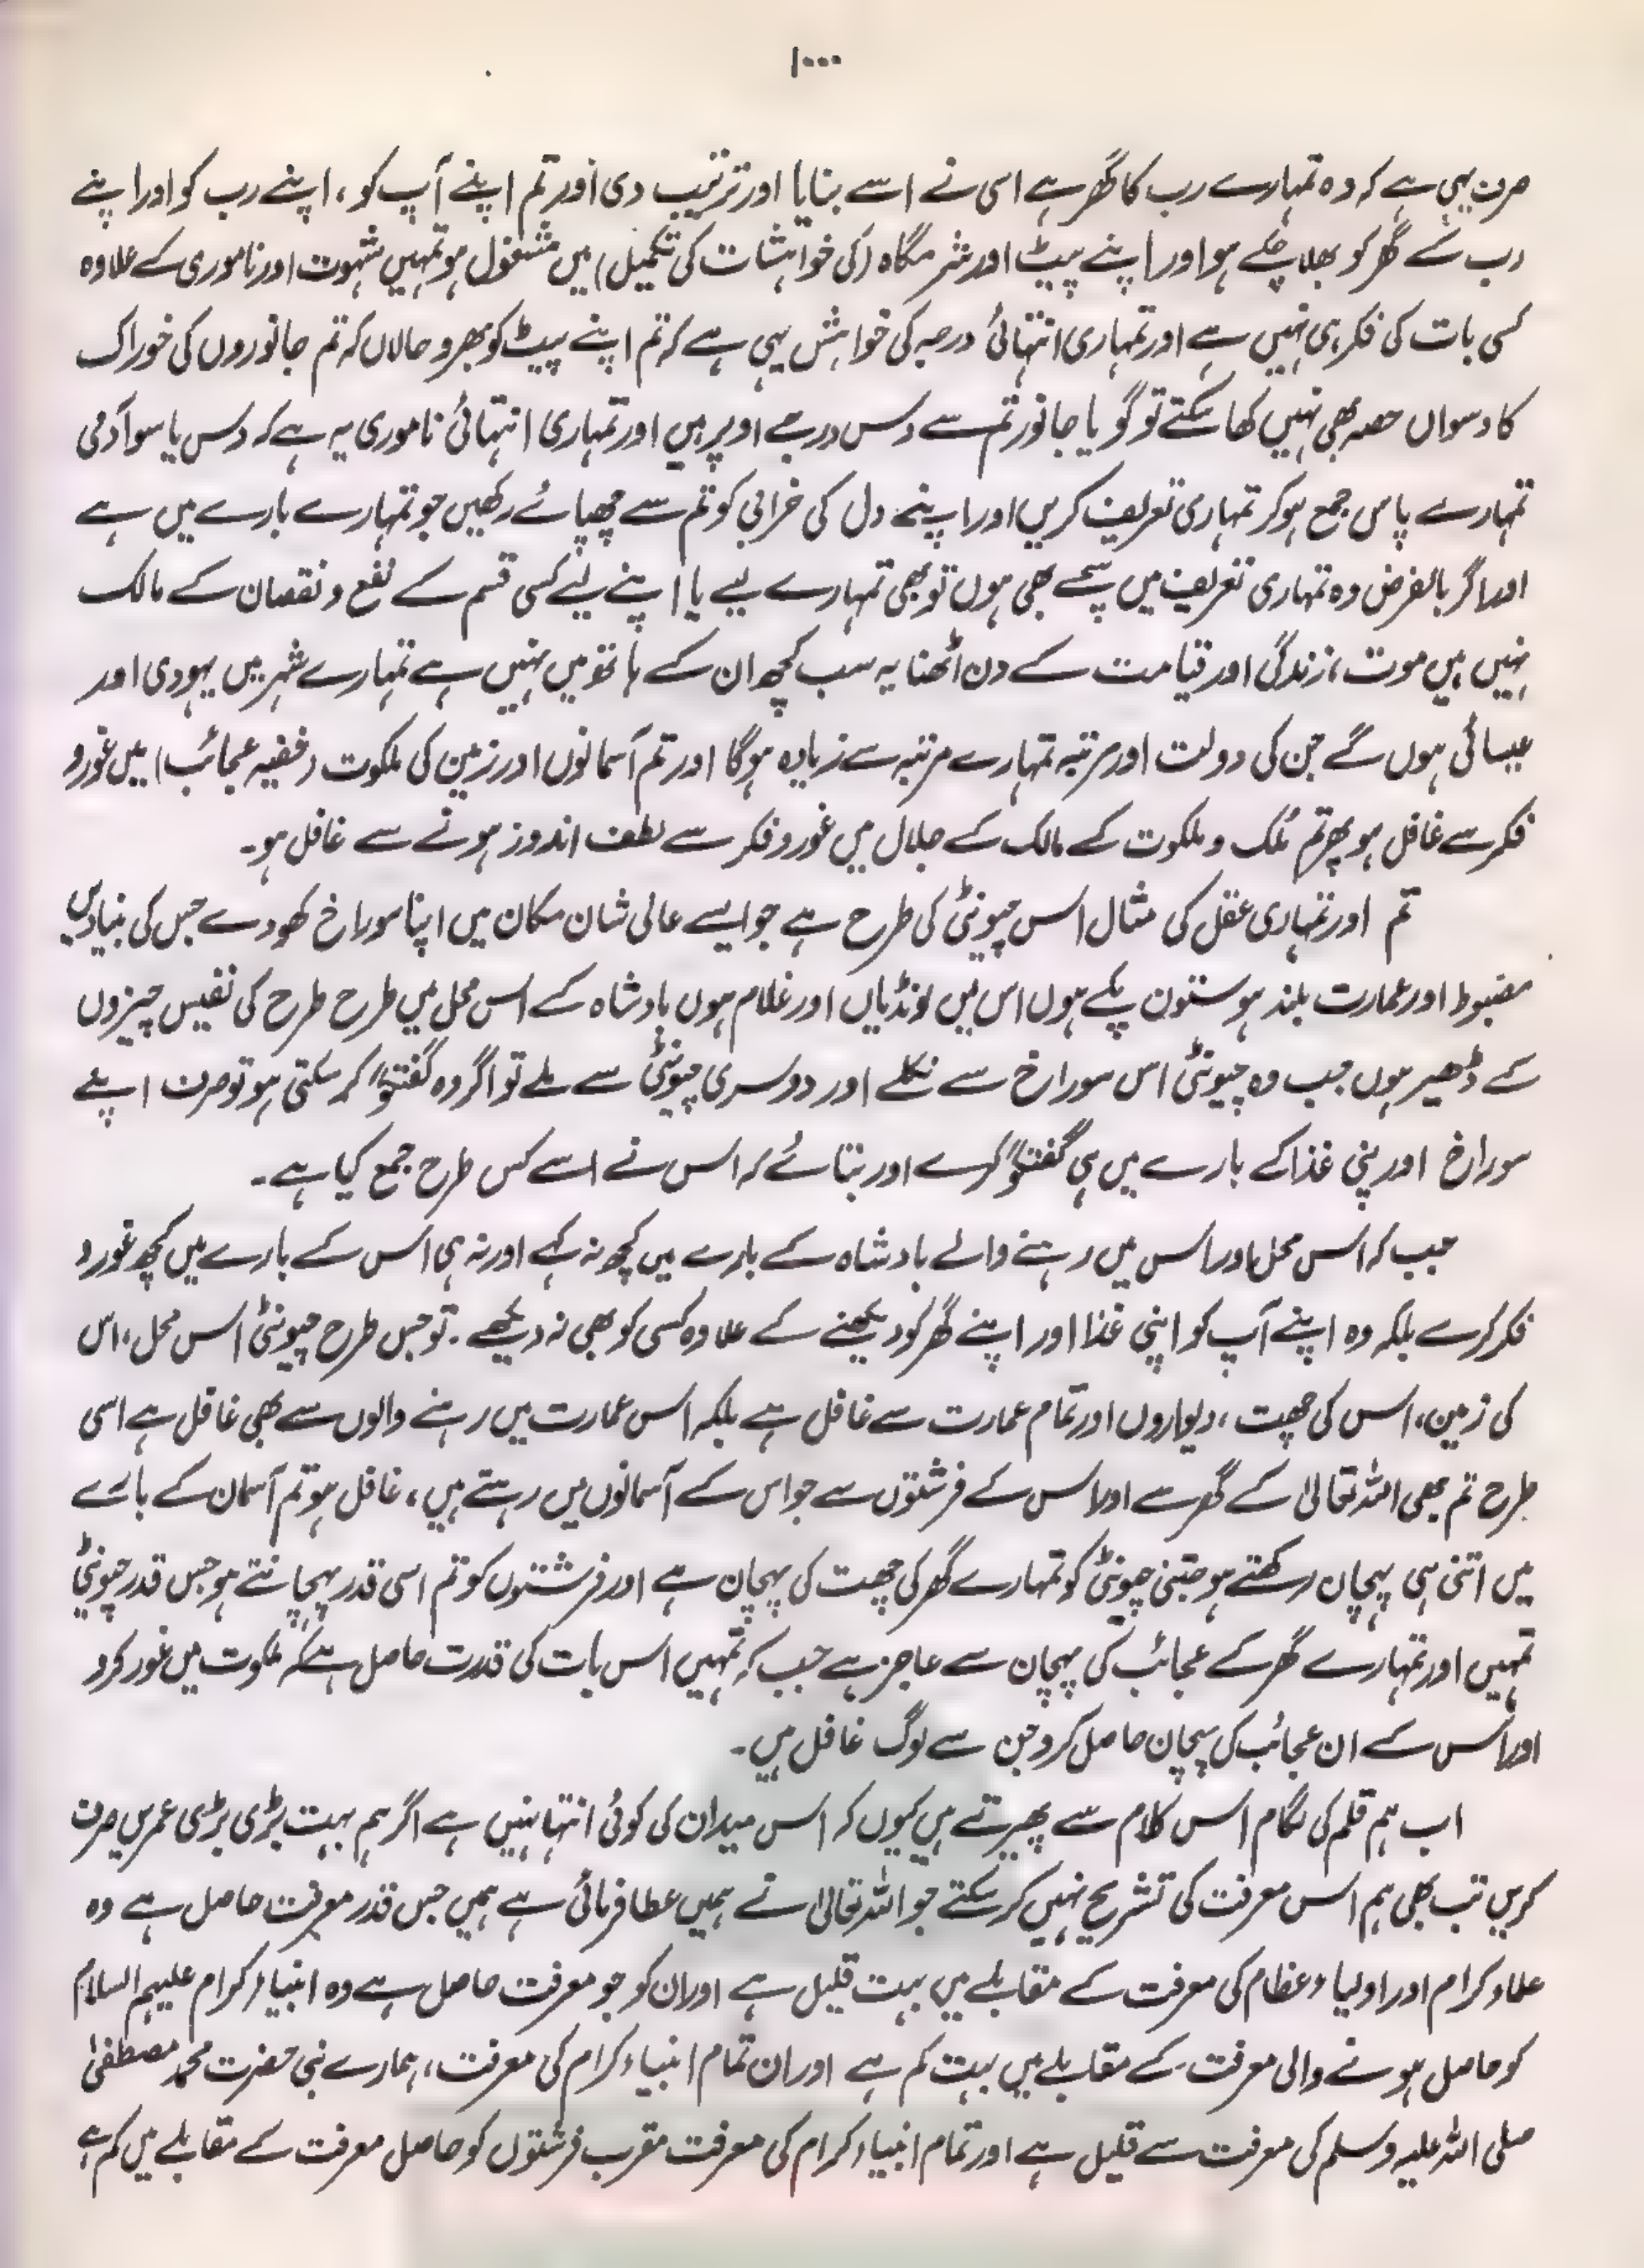 ۱۰۰۰
صرف یہی ہے کہ وہ تمہارے رب کا گھر ہے اسی نے اسے بنایا اور ترتیب دی اور تم اپنے آپ کو، اپنے رب کو اور اپنے
رب کے گھر کو بھلا چکے ہو اور اپنے پیٹ اور شرمگاہ (کی خواہشات کی تکمیل) میں مشغول ہو تمہیں شہوت اور ناموری کے علاوہ
کسی بات کی فکر ہی نہیں ہے اور تمہاری انتہائی درجہ کی خواہش یہی ہے کہ تم اپنے پیٹ کو بھرو حالاں کہ تم جانوروں کی خوراک
کا دسواں حصہ بھی نہیں کھا سکتے تو گویا جانور تم سے دس درجے اوپر ہیں اور تمہاری انتہائی ناموری یہ ہے کہ دس یا سو آدمی
تمہارے پاس جمع ہو کر تمہاری تعریف کریں اور اپنے دل کی خرابی کو تم سے چھپائے رکھیں جو تمہارے بارے میں ہے
اور اگر بالفرض وہ تمہاری تعریف میں سچے بھی ہوں تو بھی تمہارے لیے یا اپنے لیے کسی قسم کے نفع و نقصان کے مالک
نہیں ہیں موت، زندگی اور قیامت کے دن اٹھنا یہ سب کچھ ان کے ہاتھ میں نہیں ہے تمہارے شہر میں یہودی اور
عیسائی ہوں گے جن کی دولت اور مرتبہ تمہارے مرتبہ سے زیادہ ہوگا اور تم آسمانوں اور زمین کی ملکوت (خفیہ عجائب) میں غور و
فکر سے غافل ہو پھر تم مُلک و ملکوت کے مالک کے جلال میں غور و فکر سے لطف اندوز ہونے سے غافل ہو۔
تم اور تمہاری عقل کی مثال اس چیونٹی کی طرح ہے جو ایسے عالی شان مکان میں اپنا سوراخ کھودے جس کی بنیادیں
مضبوط اور عمارت بلند ہو ستون پکے ہوں اس میں لونڈیاں اور غلام ہوں بادشاہ کے اس محل میں طرح طرح کی نفیس چیزوں
کے ڈھیر ہوں جب وہ چیونٹی اس سوراخ سے نکلے اور دوسری چیونٹی سے ملے تو اگر وہ گفتگو کر سکتی ہو تو صرف اپنے
سوراخ اور اپنی غذا کے بارے میں ہی گفتگو کرے اور بتائے کہ اس نے اسے کس طرح جمع کیا ہے۔
جب کہ اس محل اور اس میں رہنے والے بادشاہ کے بارے میں کچھ نہ کہے اور نہ ہی اس کے بارے میں کچھ غور و
فکر کرے بلکہ وہ اپنے آپ کو اپنی غذا اور اپنے گھر کو دیکھنے کے علاوہ کسی کو بھی نہ دیکھے۔ تو جس طرح چیونٹی اس محل، اس
کی زمین، اس کی چھت، دیواروں اور تمام عمارت سے غافل ہے بلکہ اس عمارت میں رہنے والوں سے بھی غافل ہے اسی
طرح تم بھی اللہ تعالیٰ کے گھر سے اور اس کے فرشتوں سے جو اس کے آسمانوں میں رہتے ہیں، غافل ہو تم آسمان کے بارے
میں اتنی ہی پہچان رکھتے ہو جتنی چیونٹی کو تمہارے گھر کی چھت کی پہچان ہے اور فرشتوں کو تم اسی قدر پہچانتے ہو جس قدر چیونٹی
تمہیں اور تمہارے گھر کے عجائب کی پہچان سے عاجز ہے جب کہ تمہیں اس بات کی قدرت حاصل ہے کہ ملکوت میں غور کرو
اور اس کے ان عجائب کی پہچان حاصل کرو جن سے لوگ غافل ہیں۔
اب ہم قلم کی لگام اس کلام سے پھیرتے ہیں کیوں کہ اس میدان کی کوئی انتہا نہیں ہے اگر ہم بہت بڑی بڑی عمریں صرف
کریں تب بھی ہم اس معرفت کی تشریح نہیں کر سکتے جو اللہ تعالیٰ نے ہمیں عطا فرمائی ہے ہمیں جس قدر معرفت حاصل ہے وہ
علماء کرام اور اولیاء عظام کی معرفت کے مقابلے میں بہت قلیل ہے اور ان کو جو معرفت حاصل ہے وہ انبیاء کرام علیہم السلام
کو حاصل ہونے والی معرفت کے مقابلے میں بہت کم ہے اور ان تمام انبیاء کرام کی معرفت، ہمارے نبی حضرت محمد مصطفیٰ
صلی اللہ علیہ وسلم کی معرفت سے قلیل ہے اور تمام انبیاء کرام کی معرفت مقرب فرشتوں کو حاصل معرفت کے مقابلے میں کم ہے